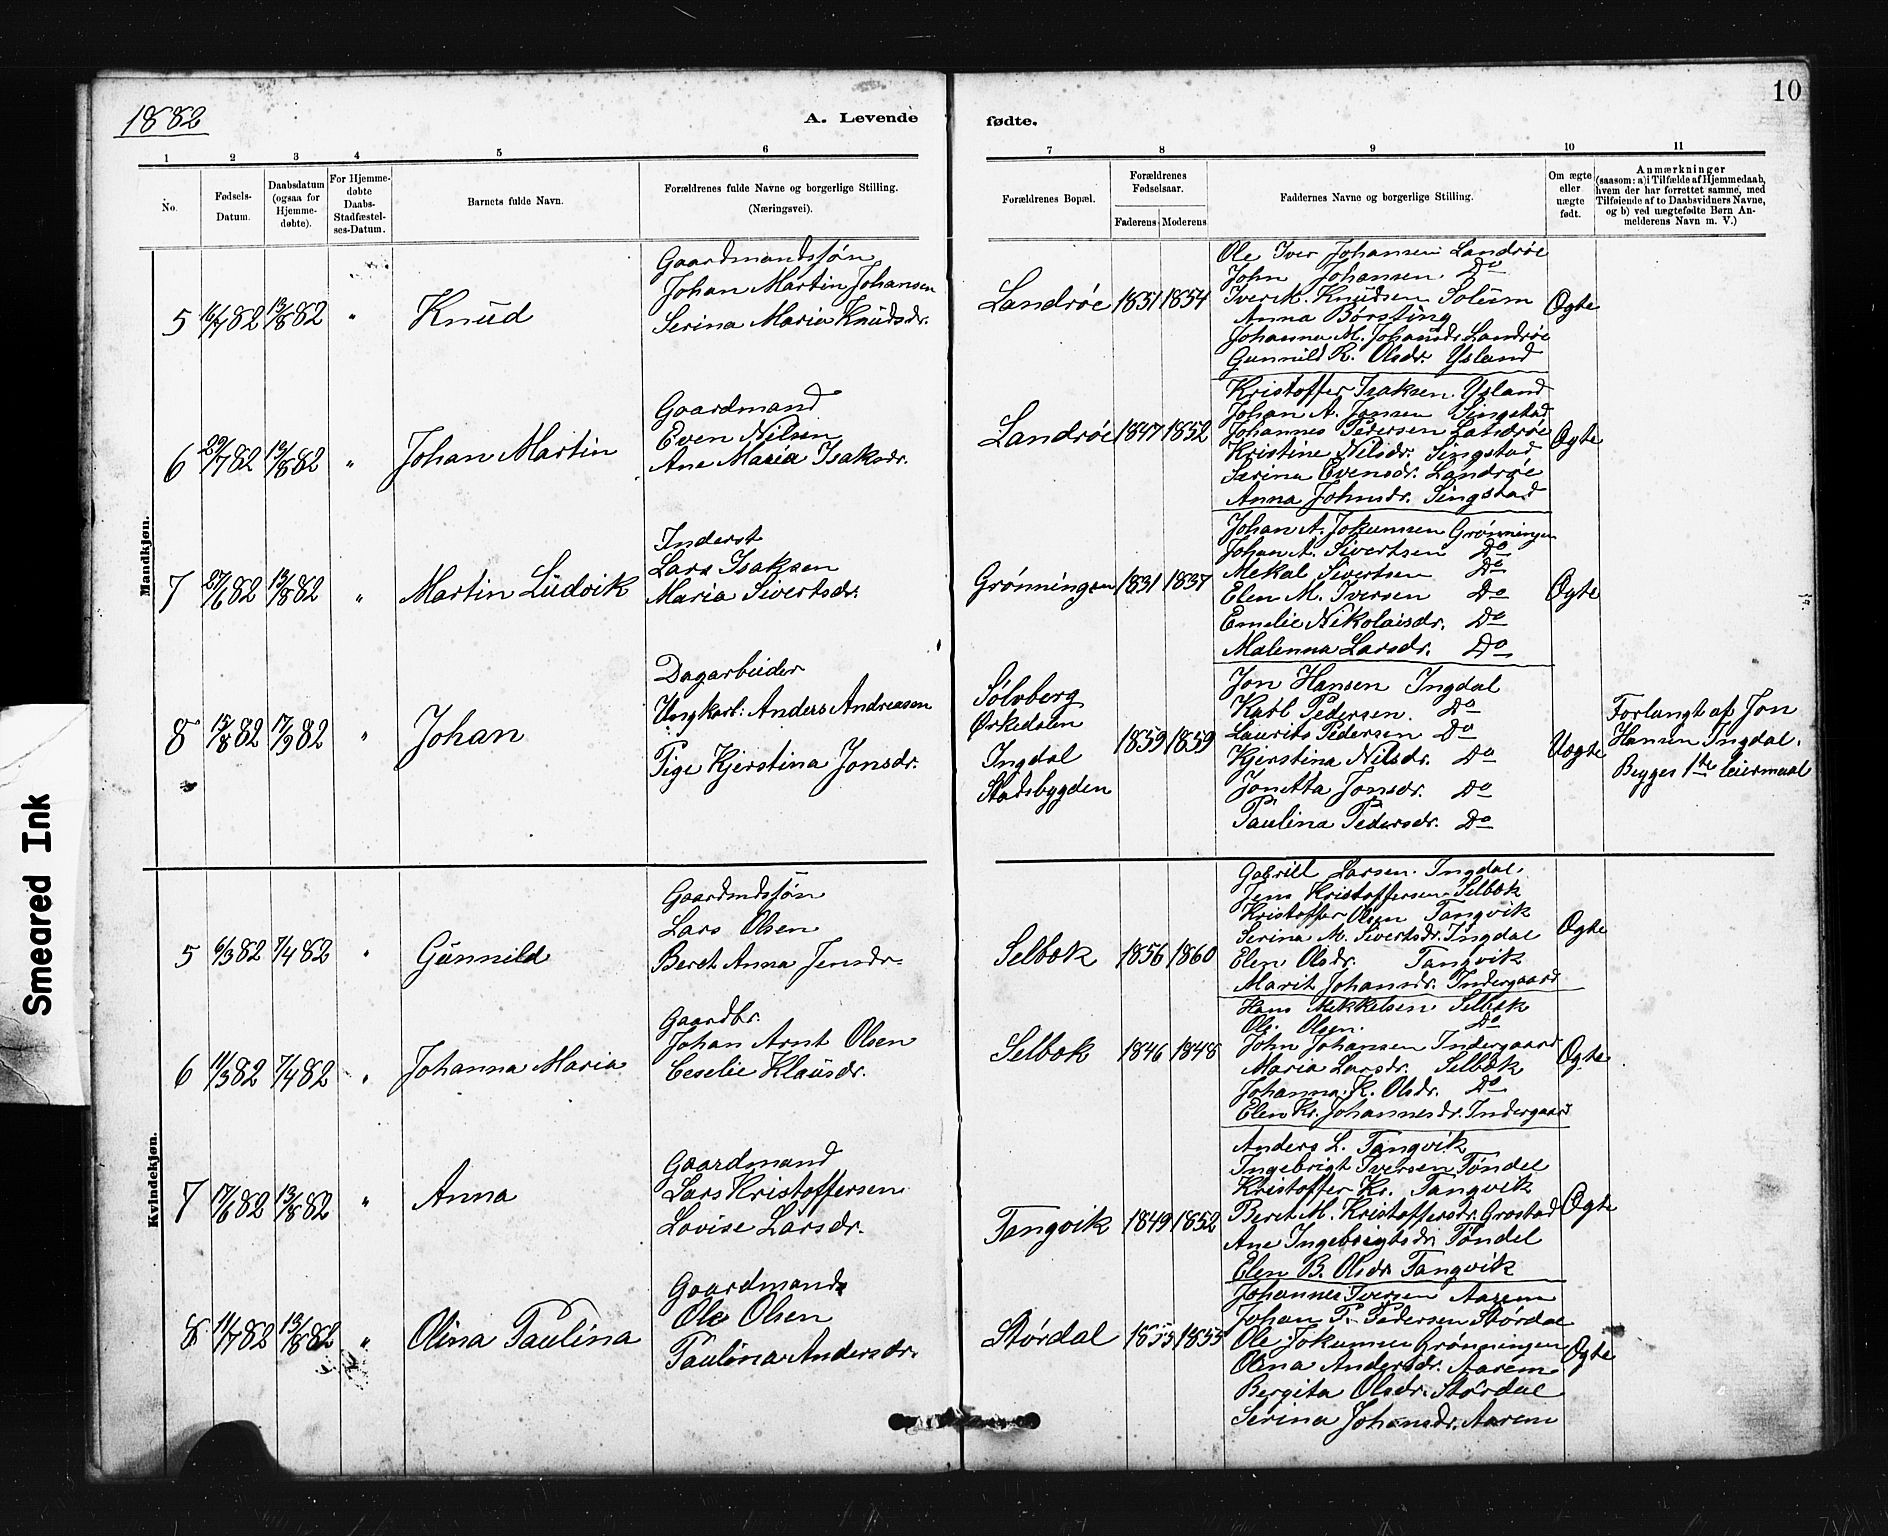 1882
A. Levende
fødte.
10
1
2
3
4
5
6
7
8
9
10
11
No.
Fødsels-
Datum.
Daabsdatum
(ogsaa for
Hjemme-
døbte).
For Hjemme-
døbte
Daabs-
Stadfæstel-
ses-Datum.
Barnets fulde Navn.
Forældrenes fulde Navne og borgerlige Stilling.
(Næringsvei).
Forældrenes Bopæl.
Forældrenes
Fødselsaar.
Faderens
Moderens
Faddernes Navne og borgerlige Stilling.
Om ægte
eller
uægte
født.
Anmærkninger
(saasom: a) i Tilfælde af Hjemmedaab,
hvem der har forrettet samme, med
Tilføiende af to Daabsvidners Navne,
og b) ved uægtefødte Børn An-
melderens Navn m. V.)
Mandkjøn.
5 16/7 82 13/8 82 " Knud
Gaardmandssøn
Johan Martin Johansen
Serina Maria Knudsdr.
Landrøe 1851 1854
Ole Iver Johansen Landrøe
John Johansen. Do
Iver K. Knudsen Solum
Anna Børsting
Johanna M. Johansdr. Landrøe
Gunnild K. Olsdr. Ysland
Ægte
6 29/7 82 13/8 82 " Johan Martin
Gaardmand
Even Nilsen
Ane Maria Isaksdr.
Landrøe 1847 1852
Kristoffer Isaksen. Ysland
Johan A. Jansen Singstad
Johannes Pedersen Landrøe
Kristine Nilsdr. Singstad
Serina Evensdr. Landrøe
Anna Johnsdr. Singstad
Ægte
7 27/6 82 13/8 82 " Martin Ludvik
Inderst
Lars Isaksen
Maria Sivertsdr.
Grønningen 1831 1837
Johan A. Jokumsen Grønningen
Johan A. Sivertsen Do
Mekal Sivertsen Do
Elen M. Iversen Do
Emelie Nikolaisdr. Do
Malenna Larsdr. Do
Ægte
8 15/8 82 17/9 82 " Johan
Dagarbeider
Ungkarl: Anders Andreasen
Pige Kjerstina Jonsdr.
Sølvberg
Ørkedalen
Ingdal
Stadsbygden
1859 1859
Jon Hansen Ingdal
Karl Pedersen. Do
Laurits Pedersen Do
Kjerstina Nilsdr. Do
Jonetta Jonsdr. Do
Paulina Pedersdr. Do
Uægte
Forlangt af Jon
Hansen Ingdal.
Begges 1ste leiermaal
Kvindekjøn.
5 6/3 82 7/4 82 " Gunnild
Gaardmdssøn
Lars Olsen
Beret Anna Jensdr.
Selbek 1856 1860
Gabriel Larsen. Ingdal.
Jens Kristoffersen Selbek
Kristoffer Olsen Tangvik
Serina M. Sivertsdr. Ingdal
Elen Olsdr. Tangvik
Marit Johansdr. Indergaard
Ægte
6 11/3 82 7/4 82 " Johanna Maria
Gaardbr.
Johan Arnt Olsen
Ceselie Klausdr.
Selbek 1846 1848
Hans Mekkelsen Selbek
Ole Olsen. Do
John Johansen Indergaard
Maria Larsdr. Selbek
Johanna K. Olsdr. Do
Elen Kr. Johannesdr. Indergaard
Ægte
7 17/6 82 13/8 82 " Anna
Gaardmand
Lars Kristoffersen
Lovise Larsdr.
Tangvik 1849 1852
Anders L. Tangvik
Ingebrigt Iversen Tøndel
Kristoffer Kr. Tangvik
Beret M. Kristoffersdr. Grostad
Ane Ingebrigtsdr. Tøndel
Elen B. Olsdr. Tangvik
Ægte
8 11/7 82 13/8 82 " Olina Paulina
Gaardmand
Ole Olsen
Paulina Andersdr.
Størdal 1853
Johannes Iversen Aarem
Johan P. Pedersen Størdal
Ole Jokumsen Grønningen
Olina Andersdr. Aarem
Bergita Olsdr. Størdal
Serina Johansdr. Aarem
Ægte
Smeared Ink